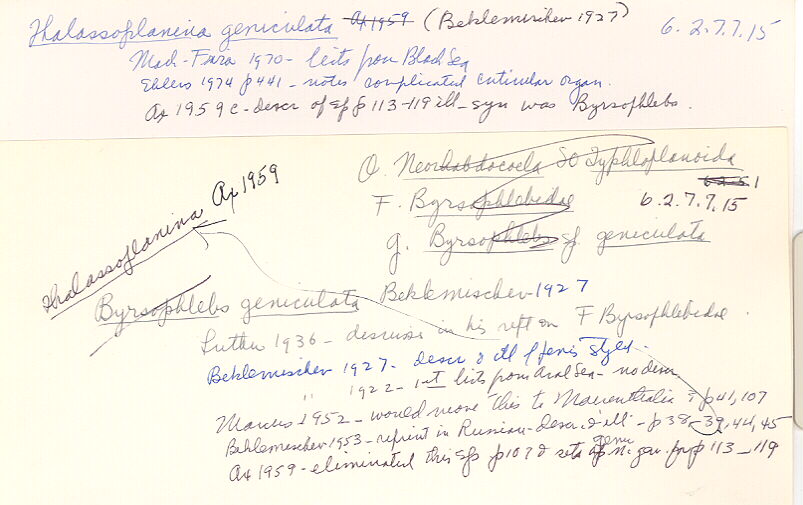 Thalassoplanina geniculata Ax 1959 (Beklemischev 1927) 6.2.7.7.15
Mack-Fira 1970 - lists from Black Sea
Ehlers 1974 p 441 - notes complicated cuticular organ.
Ax 1959c - descr of sp p 113-119 ill - syn was Byrsophlebs.
O. Neorhabdocoela SO Typhloplanoida
62.5.1
F. Byrsophlebidae 6.2.7.7.15
g. Byrsophlebs sp. geniculata
Thalassoplanina Ax 1959
Byrsophlebs geniculata Beklemischev 1927
Luther 1936 - discusses in his rept on F Byrsophlebidae.
Beklemischev 1927 - descr & ill of penis stylet.
" 1922 - 1st lists from Aral Sea - no descr
Marcus 1952 - would move this to Maehrenthalia p 41, 107
Beklemischev 1953 - reprint in Russian - descr & ill - p 38, 39, 44, 45
Ax 1959 - eliminated this sp p 107 & sets up n. gen. for p 113-119
genus